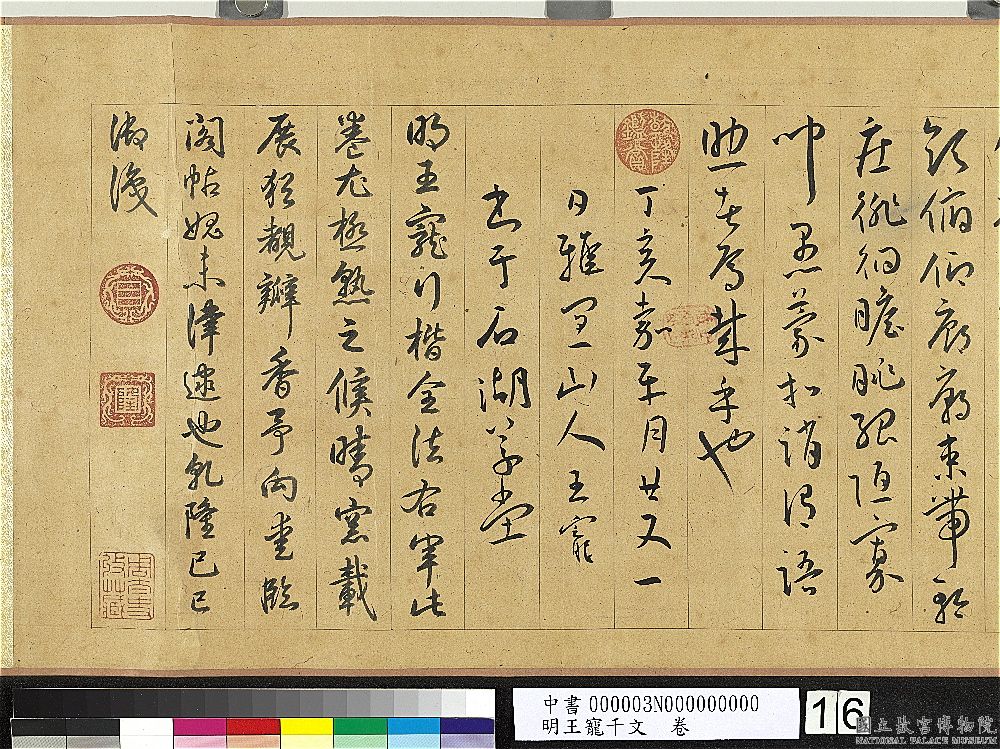 領俯仰廊廟束帶矜
莊徘徊瞻眺孤陋寡
聞愚蒙等誚謂語
助者焉哉乎也
丁亥嘉平月廿又一
日雅宜山人王寵
書于石湖草堂
明王寵行楷全法右軍此
卷尤極熟之候晴窗載
展猶覯瓣香予向臨
閣帖媿未津逮也乾隆己巳
御識
中書 000003N000000000
明王寵千文 卷
16
國立故宮博物院
NATIONAL PALACE MUSEUM